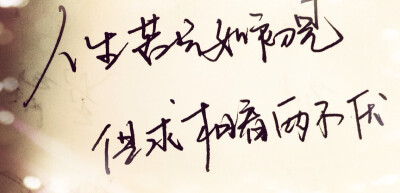 人生若只如初见
但求相看两不厌